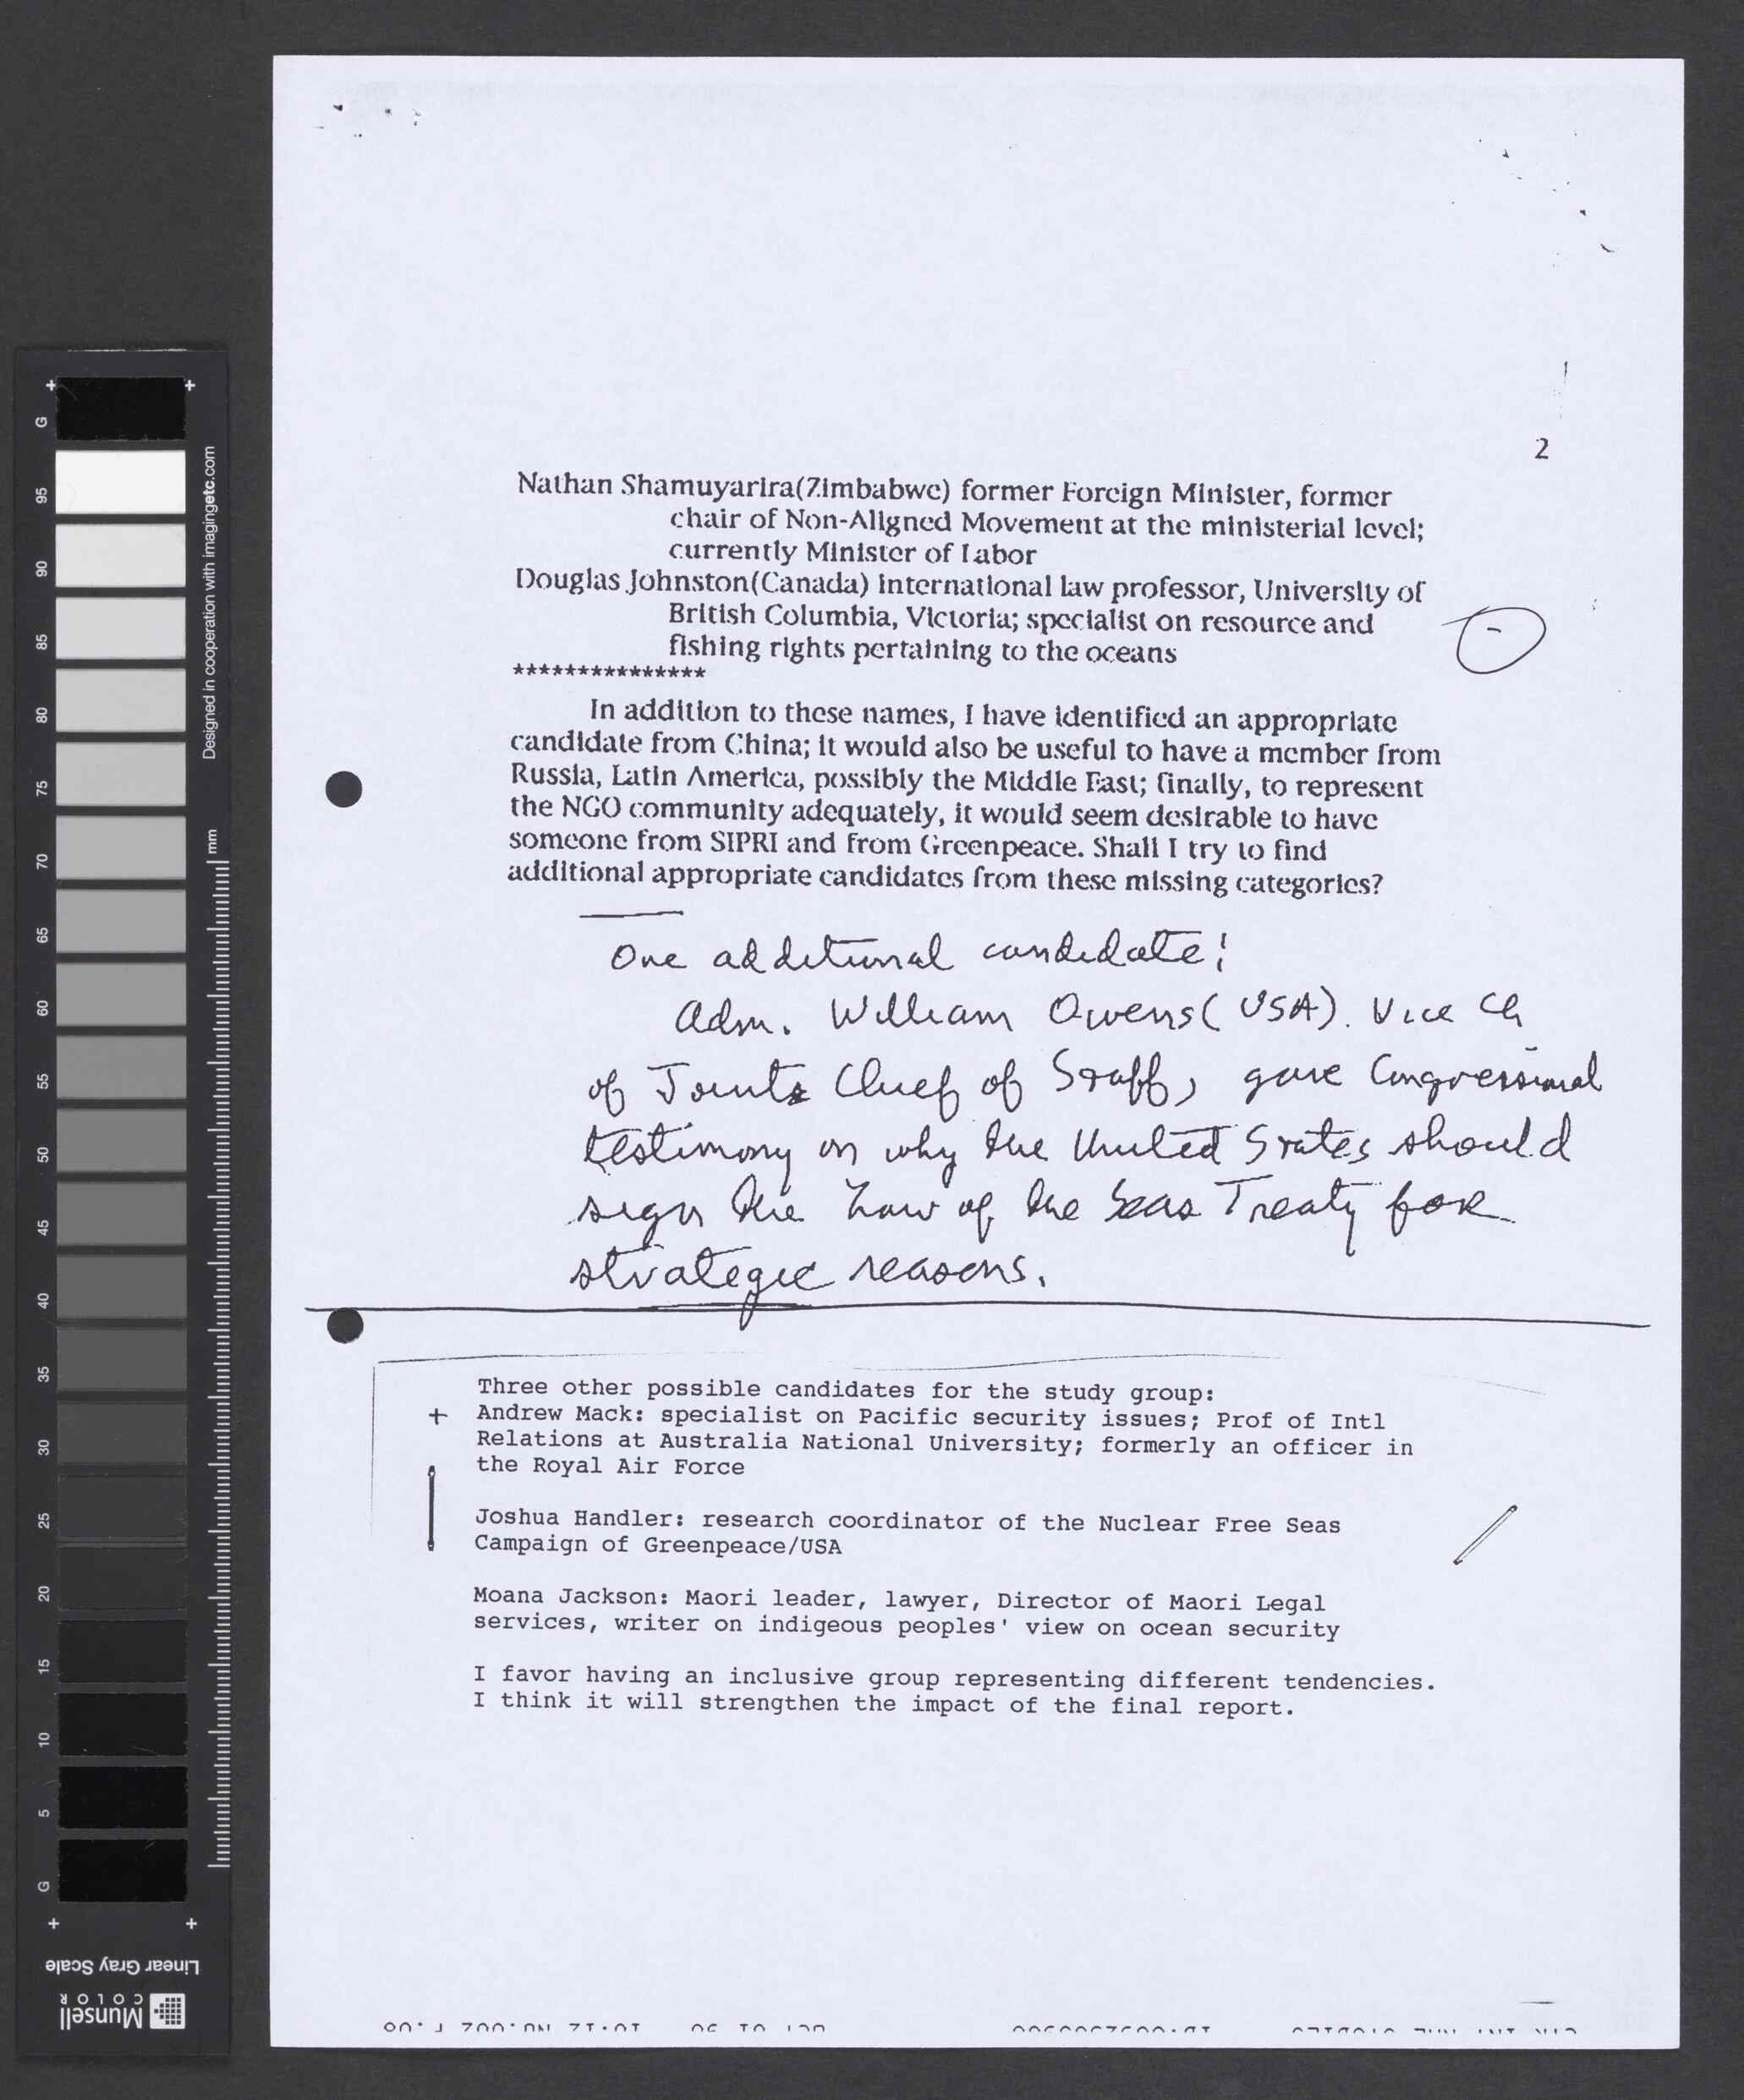 2
Nathan Shamuyarira(Zimbabwe) former Foreign Minister, former
chair of Non-Aligned Movement at the ministerial level;
currently Minister of Labor
Douglas Johnston(Canada) International law professor, University of
British Columbia, Victoria; specialist on resource and
fishing rights pertaining to the oceans
***************
In addition to these names, I have identified an appropriate
candidate from China; it would also be useful to have a member from
Russia, Latin America, possibly the Middle East; finally, to represent
the NGO community adequately, it would seem desirable to have
someone from SIPRI and from Greenpeace. Shall I try to find
additional appropriate candidates from these missing categories?
One additional candidate:
Adm. William Owens (USA). Vice Ch
of Joints Chief of Staff, gave Congressional
testimony on why the United States should
sign the Law of the Seas Treaty for
strategic reasons.
Three other possible candidates for the study group:
+ Andrew Mack: specialist on Pacific security issues; Prof of Intl
Relations at Australia National University; formerly an officer in
the Royal Air Force
Joshua Handler: research coordinator of the Nuclear Free Seas
Campaign of Greenpeace/USA
Moana Jackson: Maori leader, lawyer, Director of Maori Legal
services, writer on indigeous peoples' view on ocean security
I favor having an inclusive group representing different tendencies.
I think it will strengthen the impact of the final report.
G 95 90 85 80 75 70 65 60 55 50 45 40 35 30 25 20 15 10 5 G
Designed in cooperation with imagingetc.com
mm
Linear Gray Scale
Munsell
COLOR